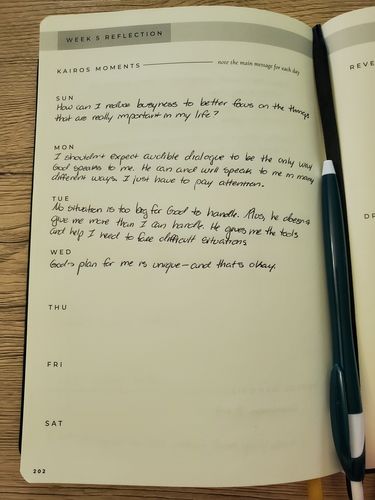 WEEK 5 REFLECTION
KAIROS MOMENTS note the main message for each day
SUN
How can I reduce busyness to better focus on the things
that are really important in my life?
MON
I shouldn't expect audible dialogue to be the only way
God speaks to me. He can and will speak to me in many
different ways. I just have to pay attention.
TUE
No situation is too big for God to handle. Plus, he doesn't
give me more than I can handle. He gives me the tools
and help I need to face difficult situations
WED
God's plan for me is unique—and that's okay.
THU
FRI
SAT
202
REVE
DE